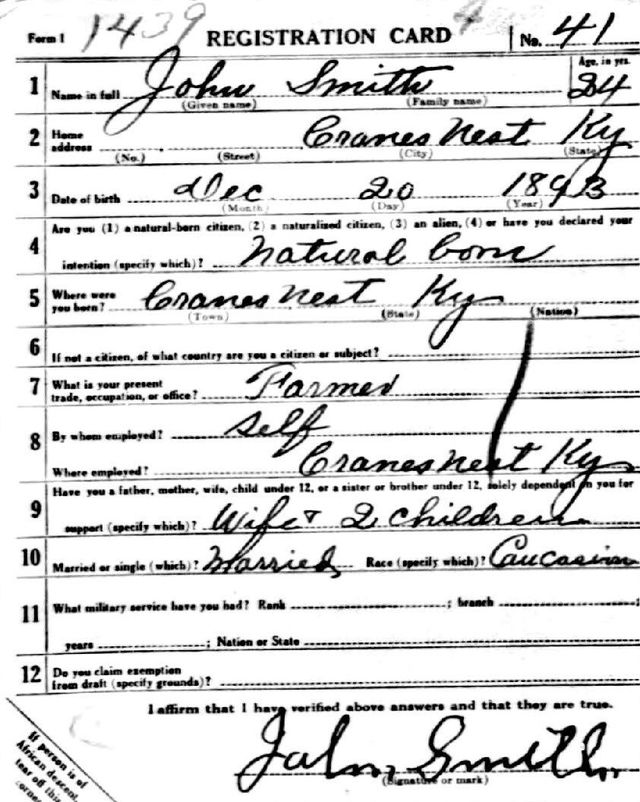 Form 1 1439 REGISTRATION CARD No. 41
1 Name in full John Smith Age, in yrs. 24
(Given name) (Family name)
2 Home address Cranes Nest Ky
(No.) (Street) (City) (State)
3 Date of birth Dec 20 1893
(Month) (Day) (Year)
4 Are you (1) a natural-born citizen, (2) a naturalized citizen, (3) an alien, (4) or have you declared your
intention (specify which)? Natural born
5 Where were you born? Cranes Nest Ky
(Town) (State) (Nation)
6 If not a citizen, of what country are you a citizen or subject?
7 What is your present trade, occupation, or office? Farmer
8 By whom employed? Self
Where employed? Cranes nest Ky
9 Have you a father, mother, wife, child under 12, or a sister or brother under 12, solely dependent on you for
support (specify which)? Wife & 2 children
10 Married or single (which)? Married Race (specify which)? Caucasian
11 What military service have you had? Rank ; branch ;
years ; Nation or State
12 Do you claim exemption from draft (specify grounds)?
I affirm that I have verified above answers and that they are true.
John Smith
(Signature or mark)
If person is of
African descent,
tear off this
corner